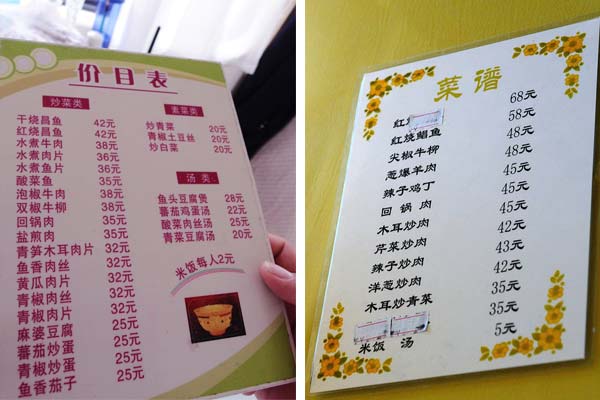 价目表
炒菜类
干烧昌鱼 42元
红烧昌鱼 42元
水煮牛肉 38元
水煮肉片 36元
水煮鱼片 36元
酸菜鱼 35元
泡椒牛肉 38元
双椒牛柳 38元
回锅肉 35元
盐煎肉 35元
青笋木耳肉片 32元
鱼香肉丝 32元
黄瓜肉片 32元
青椒肉丝 32元
青椒肉片 32元
麻婆豆腐 25元
蕃茄炒蛋 25元
青椒炒蛋 25元
鱼香茄子 25元
素菜类
炒青菜 20元
青椒土豆丝 20元
炒白菜 20元
汤 类
鱼头豆腐煲 28元
蕃茄鸡蛋汤 22元
酸菜肉丝汤 25元
青菜豆腐汤 20元
米饭每人2元
菜谱
红 68元
红烧鲳鱼 58元
尖椒牛柳 48元
葱爆羊肉 48元
辣子鸡丁 45元
回 锅 肉 45元
木耳炒肉 45元
芹菜炒肉 42元
辣子炒肉 43元
洋葱炒肉 42元
木耳炒青菜 35元
35元
米饭 汤 5元